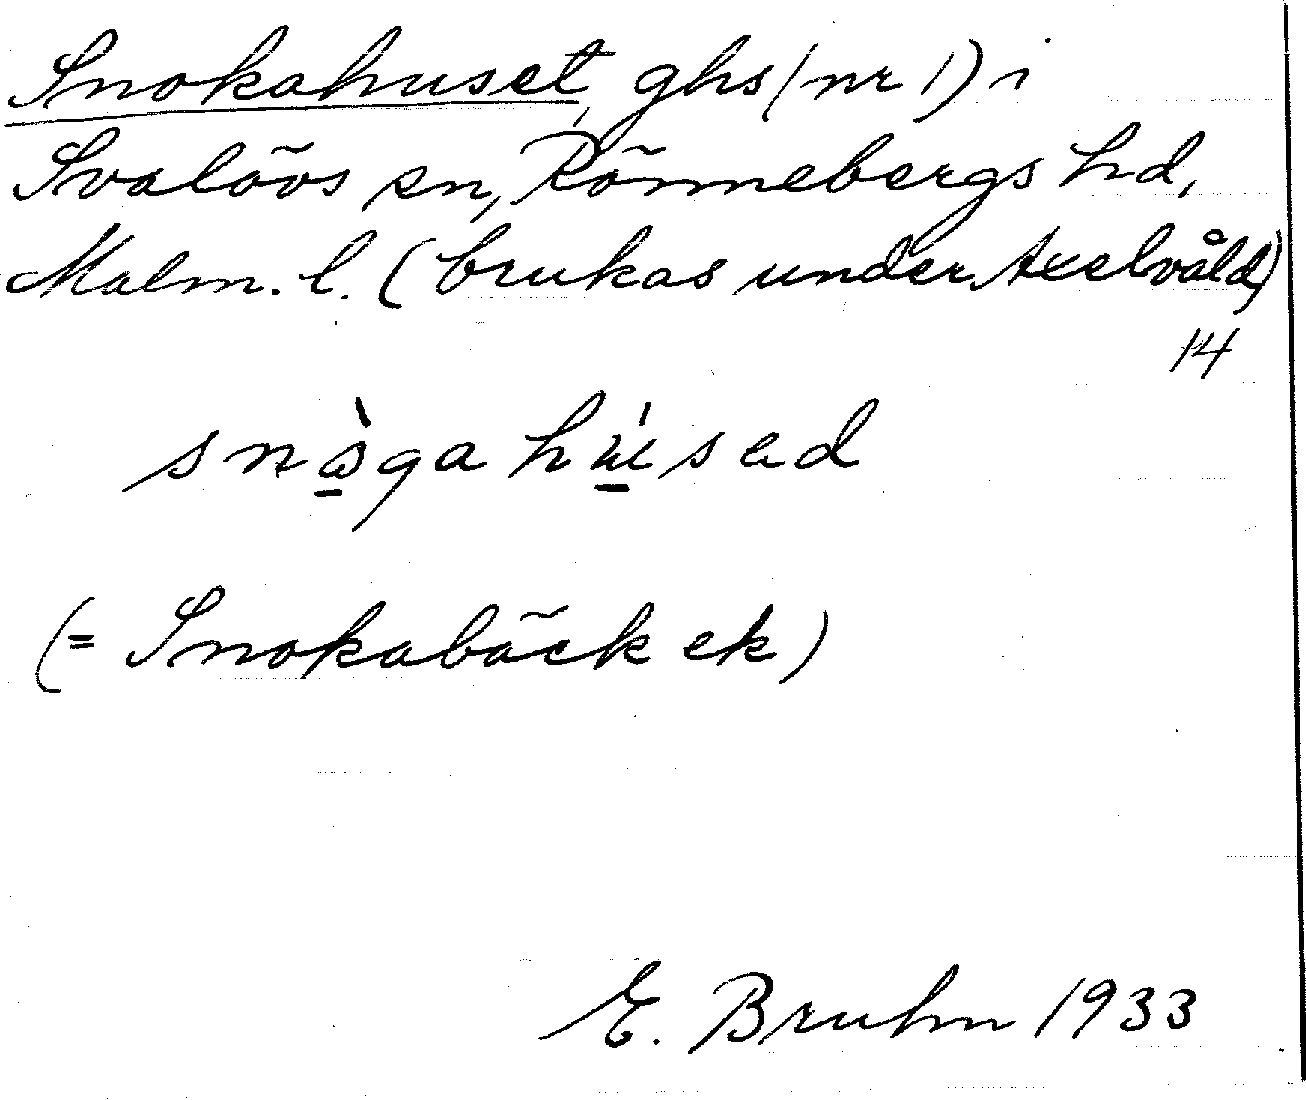 Snokahuset, ghs (nr 1) i
Svalövs sn, Rönnebergs hd,
Malm. l. (brukas under Axelvåld)
14
snò̱ga hú̱sad
(= Snokabäck ek)
E. Bruhn 1933